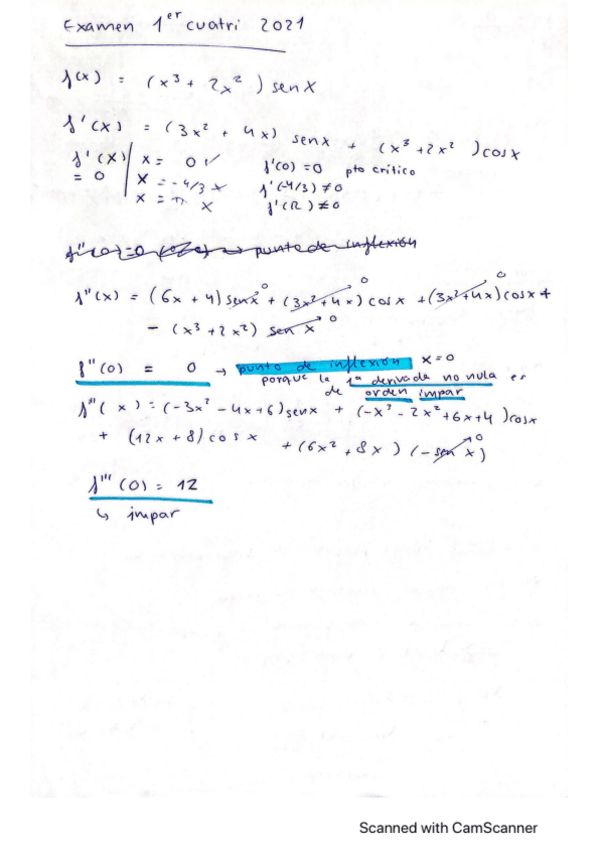 Examen 1er cuatri 2021
f(x) = (x³ + 2x²) senx
f'(x) = (3x² + 4x) senx + (x³ + 2x²) cosx
f'(x) | x = 0 ✓ f'(0) = 0 pto crítico
= 0 | x = -4/3 x f'(-4/3) ≠ 0
x = π x f'(π) ≠ 0
f''(x) = (6x + 4) senx⁰ + (3x² + 4x)⁰ cosx + (3x² + 4x)⁰ cosx +
- (x³ + 2x²) sen x⁰
f''(0) = 0 → punto de inflexión x=0
porque la 1ª derivada no nula es
de orden impar
f'''(x) = (-3x² - 4x + 6) senx + (-x³ - 2x² + 6x + 4) cosx
+ (12x + 8) cosx + (6x² + 8x) (-sen x)⁰
f'''(0) = 12
↳ impar
Scanned with CamScanner